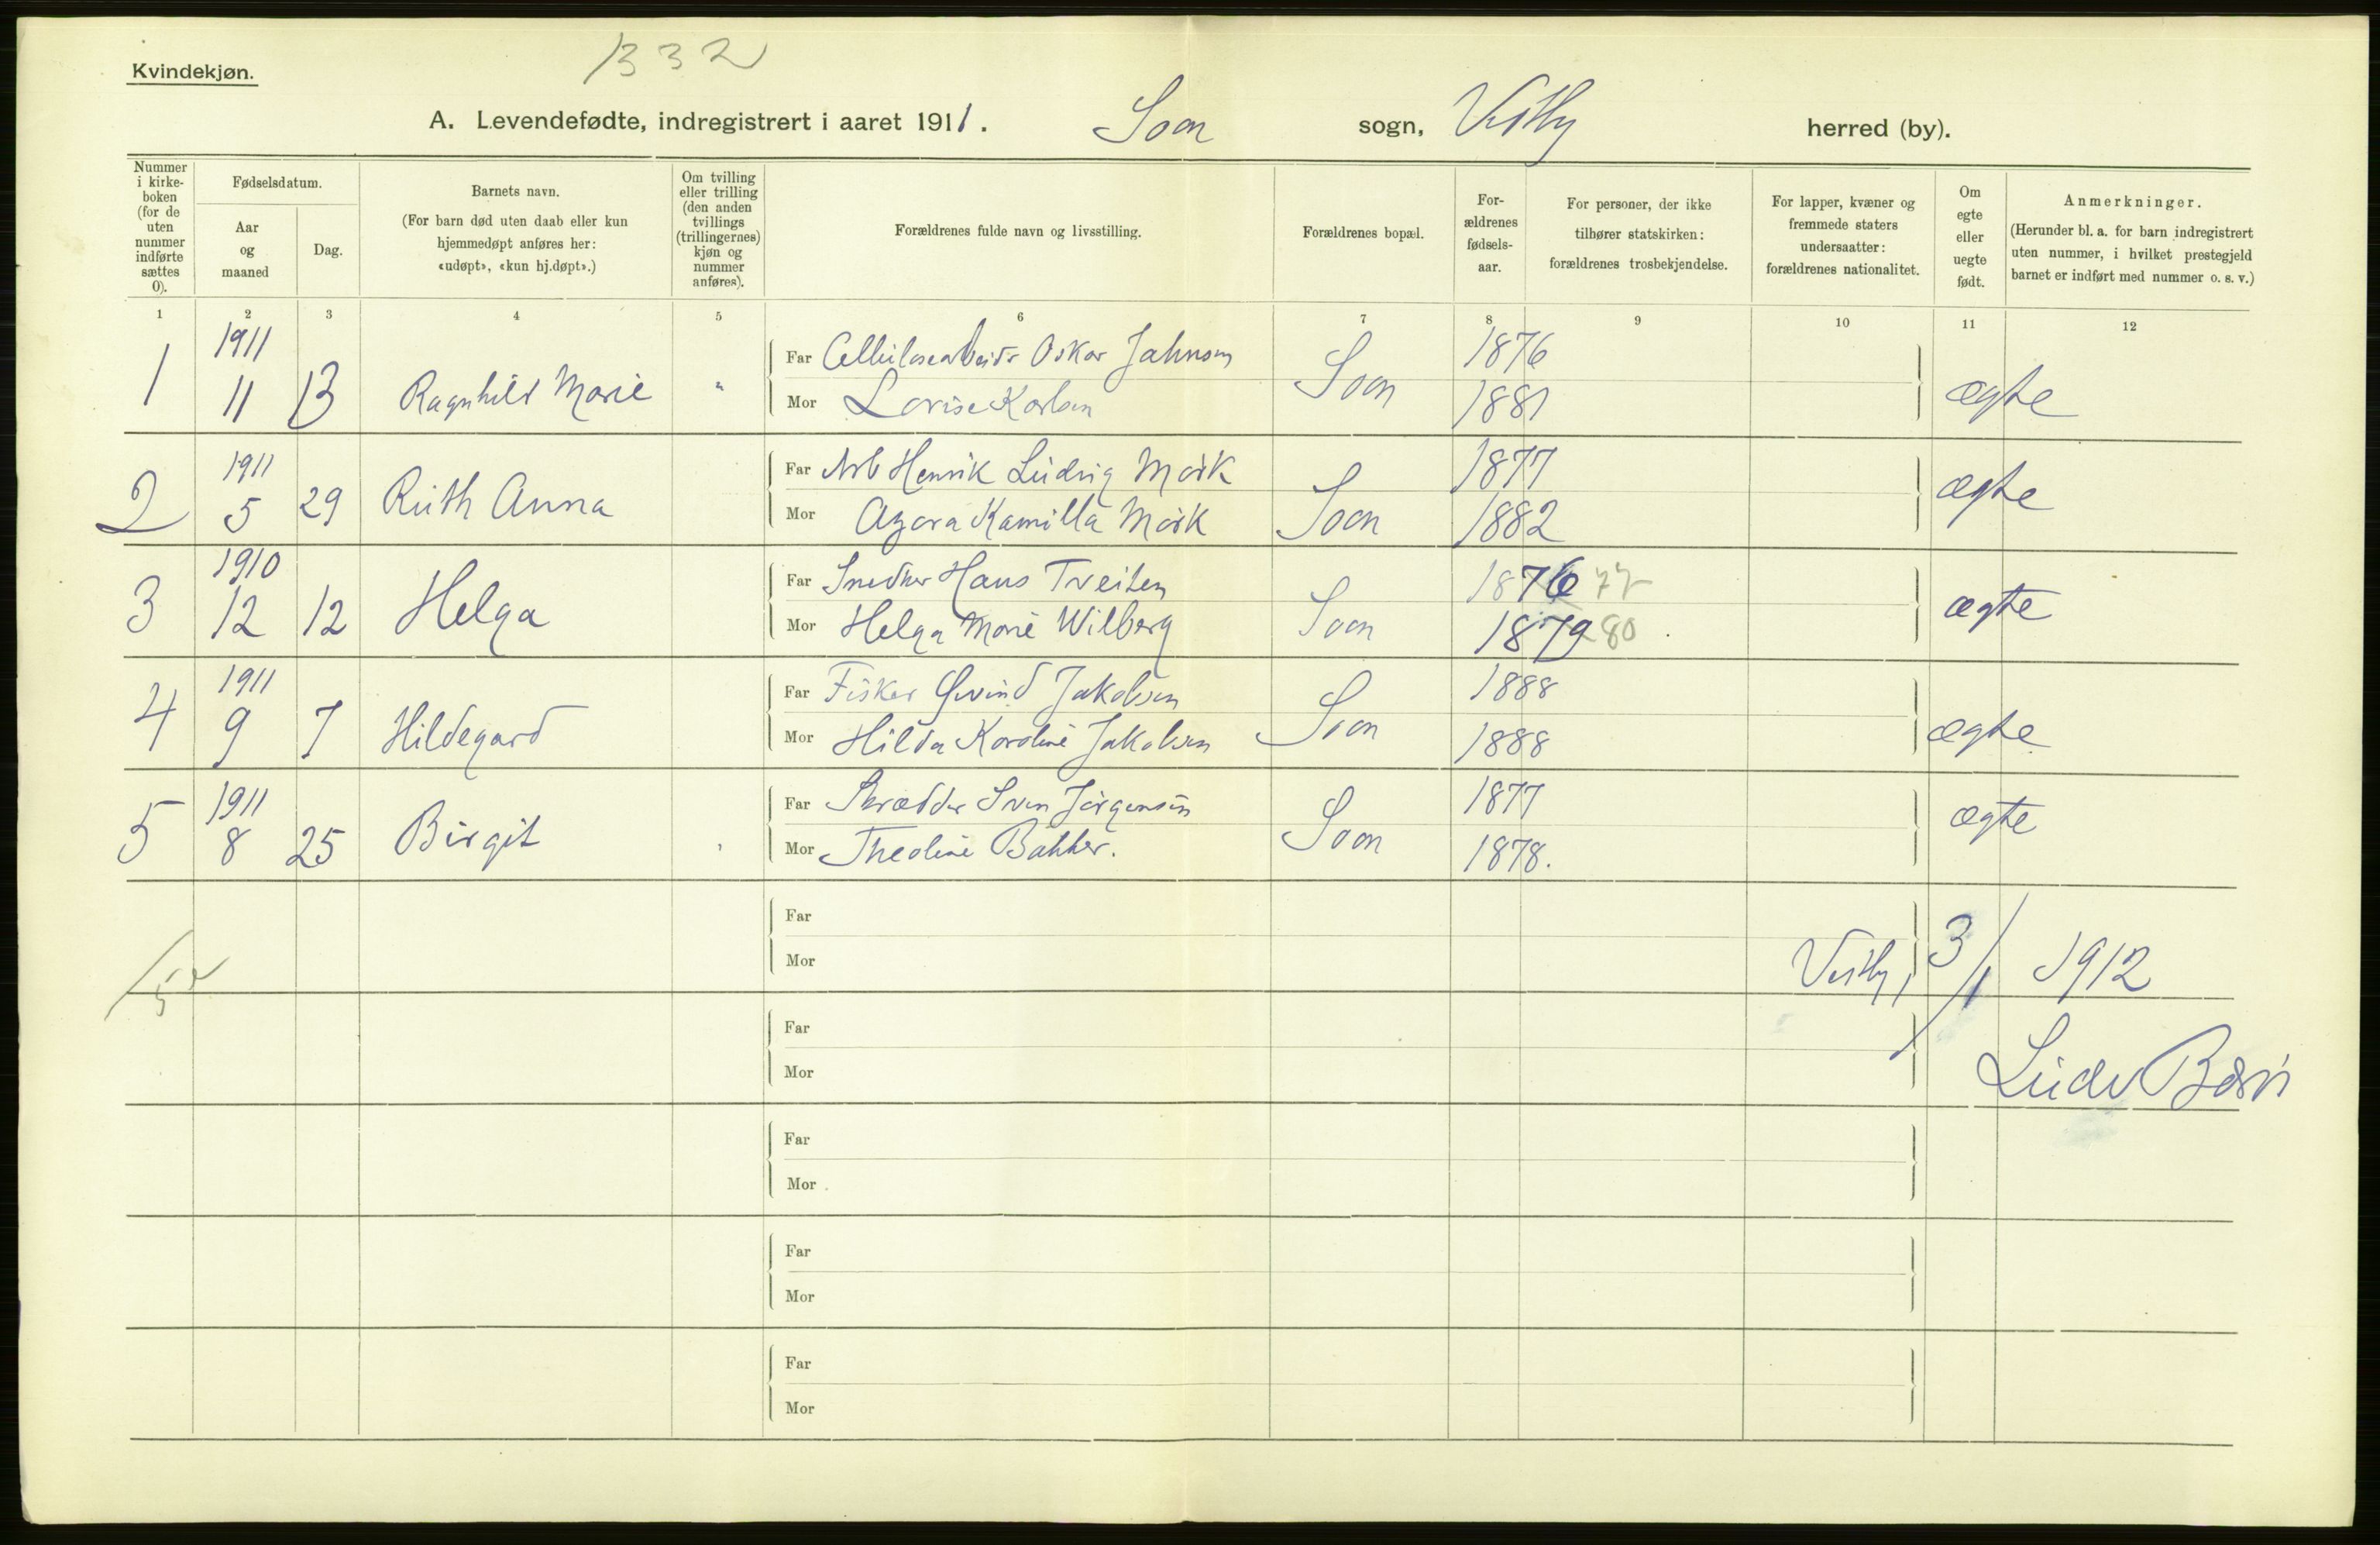 Kvindekjøn.
1332
A. Levendefødte, indregistrert i aaret 1911. Soon sogn, Vestby herred (by).
Nummer i kirke- boken (for de uten nummer indførte sættes 0).
Fødselsdatum.
Aar og maaned
Dag.
Barnets navn.
(For barn død uten daab eller kun hjemmedøpt anføres her: «udøpt», «kun hj.døpt».)
Om tvilling eller trilling (den anden tvillings (trillingernes) kjøn og nummer anføres).
Forældrenes fulde navn og livsstilling.
Forældrenes bopæl.
For- ældrenes fødsels- aar.
For personer, der ikke tilhører statskirken: forældrenes trosbekjendelse.
For lapper, kvæner og fremmede staters undersaatter: forældrenes nationalitet.
Om egte eller uegte født.
Anmerkninger.
(Herunder bl. a. for barn indregistrert uten nummer, i hvilket prestegjeld barnet er indført med nummer o. s. v.)
1 2 3 4 5 6 7 8 9 10 11 12
1911 Far Cellulosearbeidr Oskar Jahnsen 1876
1 11 13 Ragnhild Marie " Mor Lovise Karlsen Soon 1881 ægte
1911 Far Arb Henrik Ludvig Mørk 1877
2 5 29 Ruth Anna Mor Agora Kamilla Mørk Soon 1882 ægte
1910 Far Snedker Hans Treiten 1876 77
3 12 12 Helga Mor Helga Marie Wilberg Soon 1879 80 ægte
1911 Far Fisker Øivind Jakobsen 1888
4 9 7 Hildegard Mor Hilda Karoline Jakobsen Soon 1888 ægte
1911 Far Skrædder Sven Jørgensen 1877
5 8 25 Birgit Mor Theoline Bakker. Soon 1878. ægte
Far
Mor Vestby, 3/1 1912
Far
Mor Ludv
Far
Mor
Far
Mor
Far
Mor